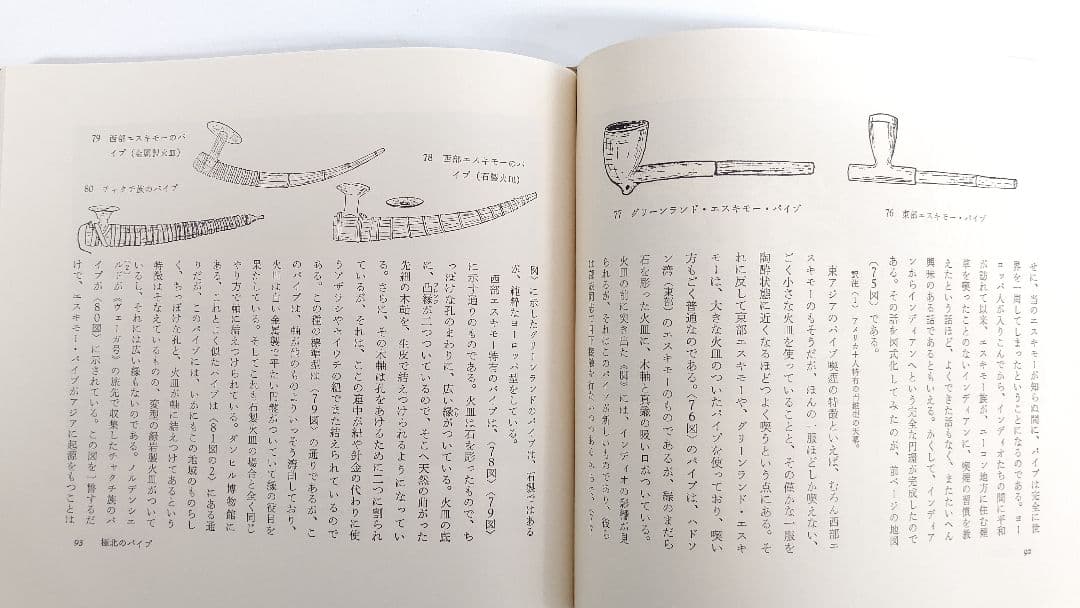 77 グリーンランド・エスキモー・パイプ
76 東部エスキモー・パイプ
せに、当のエスキモーが知らぬ間に、パイプは完全に世
界を一周してしまったということになるのである。ヨー
ロッパ人が入りこんでから、インディオたちの間に平和
が訪れて以来、エスキモー族が、ユーコン地方に住む煙
草を喫ったことのないインディアンに、喫煙の習慣を教
えたという話ほど、よくできた話もなく、またたいへん
興味のある話であるともいえる。かくして、インディア
ンからインディアンへという完全な円環が完成したので
ある。その話を図式化してみたのが、前ページの地図
(75図)である。
訳注(1) アメリカ土人特有の円錐型の天幕。
東アジアのパイプ喫煙の特徴といえば、むろん西部エ
スキモーのもそうだが、ほんの一服ほどしか喫えない、
ごく小さな火皿を使っていることと、その僅かな一服を
陶酔状態に近くなるほどつよく喫うという点にある。そ
れに反して東部エスキモーや、グリーンランド・エスキ
モーは、大きな火皿のついたパイプを使っており、喫い
方もごく普通なのである。(76図)のパイプは、ハドソ
ン湾(東部)のエスキモーのものであるが、緑のまだら
石を彫った火皿に、木軸と真鍮の吸い口がついている。
火皿の前に突き出た(図)には、インディオの影響が見
られるが、それはこのパイプが新しいものであり、彼ら
92
79 西部エスキモーのパ
イプ(金属製火皿)
78 西部エスキモーのパ
イプ(石製火皿)
80 チャクチ族のパイプ
図)に示したグリーンランドのパイプは、石製ではある
が、純粋なヨーロッパ型をしている。
西部エスキモー特有のパイプは、(78図)(79図)
に示す通りのものである。火皿は石を彫ったもので、ち
っぽけな孔のまわりに、広い縁がついている。火皿の底
に、凸縁が二つついているので、そこへ天然の曲がった
先細の木軸を、生皮で結えつけるようになってい
る。さらに、その木軸は孔をあけるために二つに割られ
ているが、それは、ここの連中が紐や針金の代わりに使
うアザラシやセイウチの紐でまた結えられているので
ある。この種の標準型は(79図)の通りであるが、こ
のパイプは、軸が他のものよりいっそう湾曲しており、
火皿は白い金属製で平たい円盤がついていて縁の役目を
果たしている。そしてこれも石製火皿の場合と全く同じ
やり方で軸に結えつけられている。ダンヒル博物館に
ある、これとごく似たパイプは(81図の2)にある通
りだが、このパイプには、いかにもこの地域のものらし
く、ちっぽけな孔と、火皿が軸に結えつけてあるという
特徴はそなえているものの、変型の緑岩製火皿がついて
いるし、それには広い縁もないのである。ノルデンシェ
ルドが(ヴェーガ号)の旅先で収集したチャクチ族のパ
イプが(80図)に示されている。この図を一瞥するだ
けで、エスキモー・パイプがアジアに起源をもつことは
93 極北のパイプ